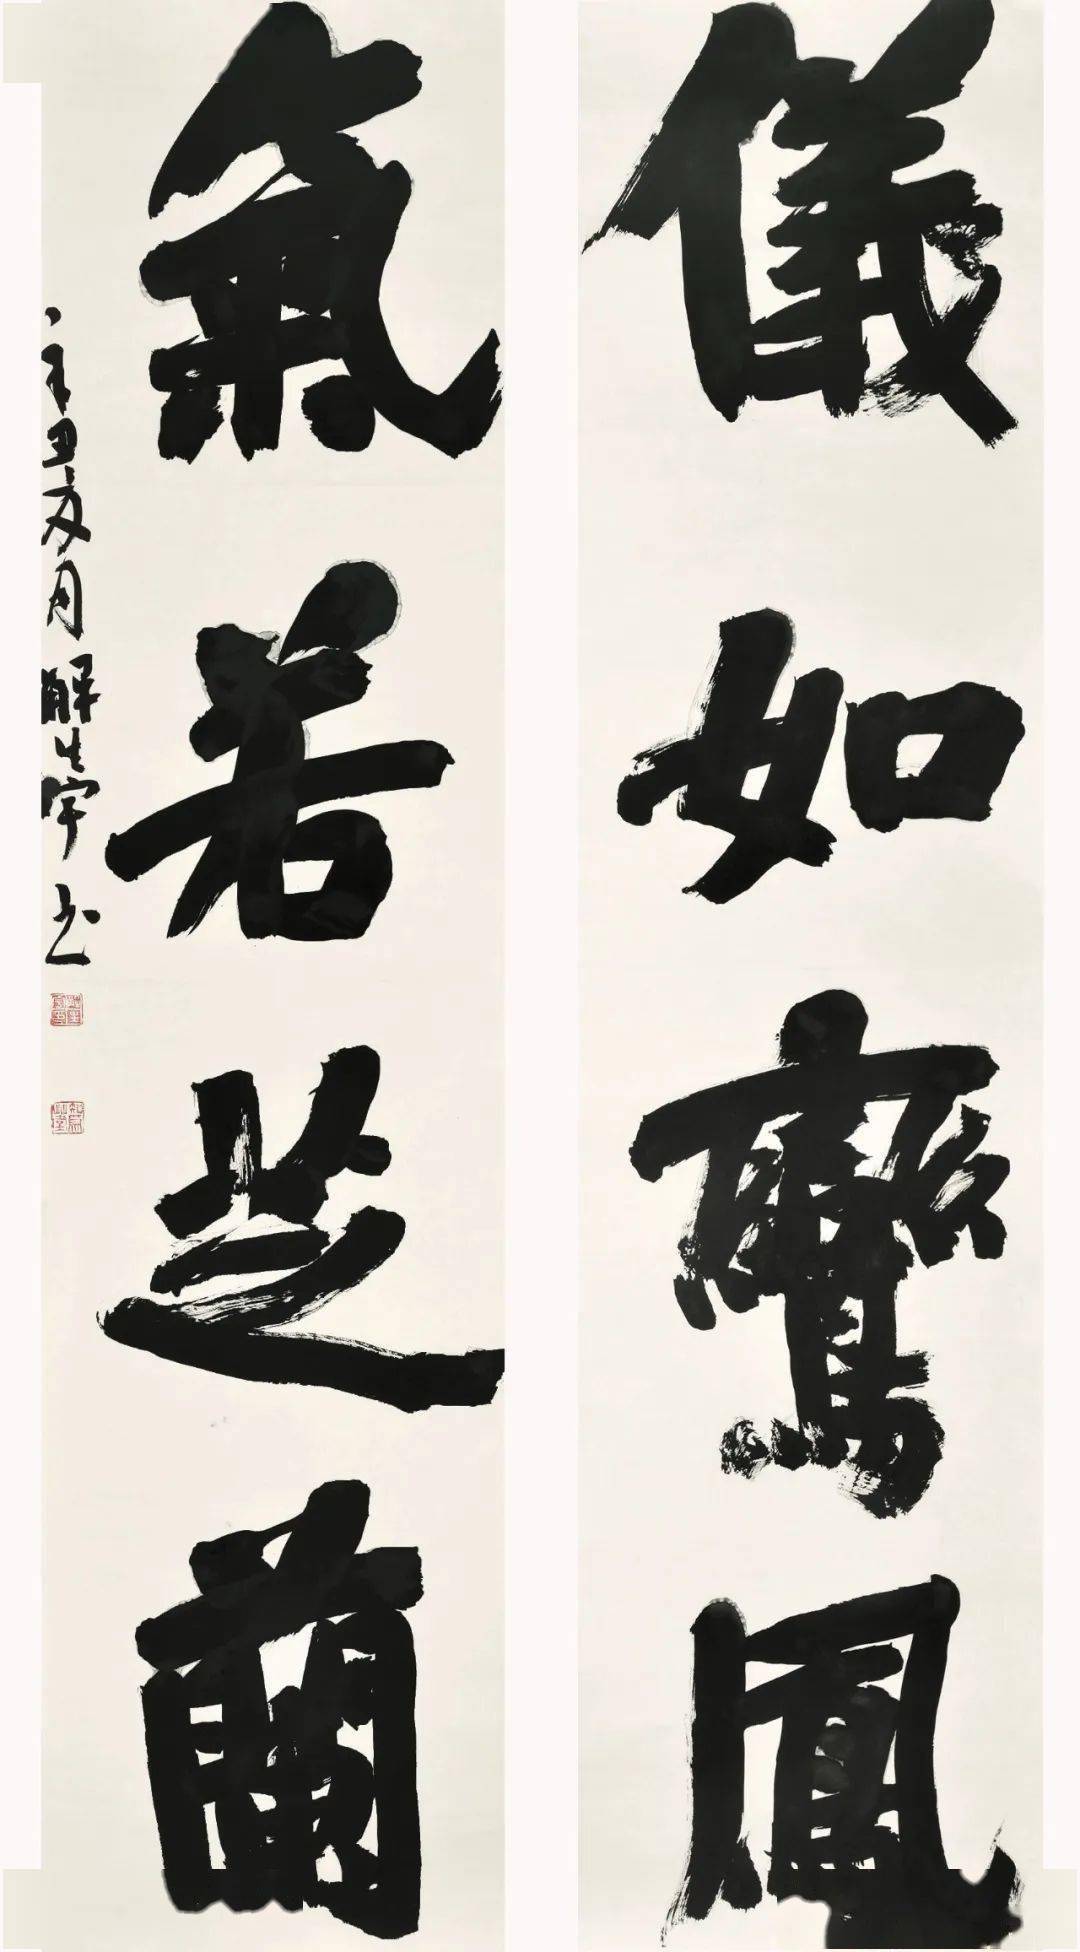 儀如鸞鳳
氣若芝蘭
辛丑夏月解生宇書